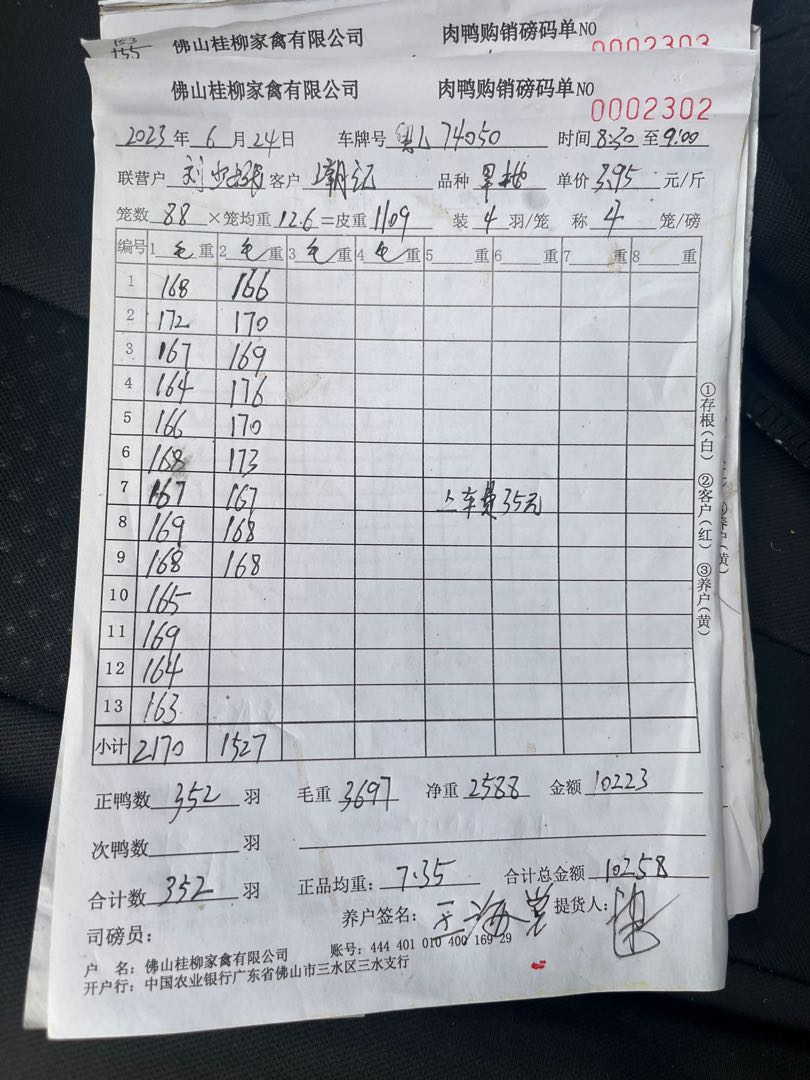 153
155
佛山桂柳家禽有限公司 肉鸭购销磅码单NO 0002303
佛山桂柳家禽有限公司 肉鸭购销磅码单NO 0002302
2023年6月24日 车牌号 74050 时间8:30至9:00
联营户 刘 客户 潮记 品种 单价3.95元/斤
笼数88×笼均重12.6=皮重1109 装4羽/笼 称4笼/磅
编号 1毛重 2毛重 3毛重 4毛重 5 重 6 重 7 重 8 重
1 168 166
2 172 170
3 167 169
4 164 176
5 166 170
6 168 173
7 167 167 上车费35元
8 169 168
9 168 168
10 165
11 169
12 164
13 163
小计 2170 1527
①存根(白) ②客户(红) ③养户(黄)
正鸭数352羽 毛重3697 净重2588 金额10223
次鸭数 羽
合计数352羽 正品均重:7.35 合计总金额10258
养户签名:王海 提货人:
司磅员:
户 名:佛山桂柳家禽有限公司 账号:444 401 010 400 169 29
开户行:中国农业银行广东省佛山市三水区三水支行